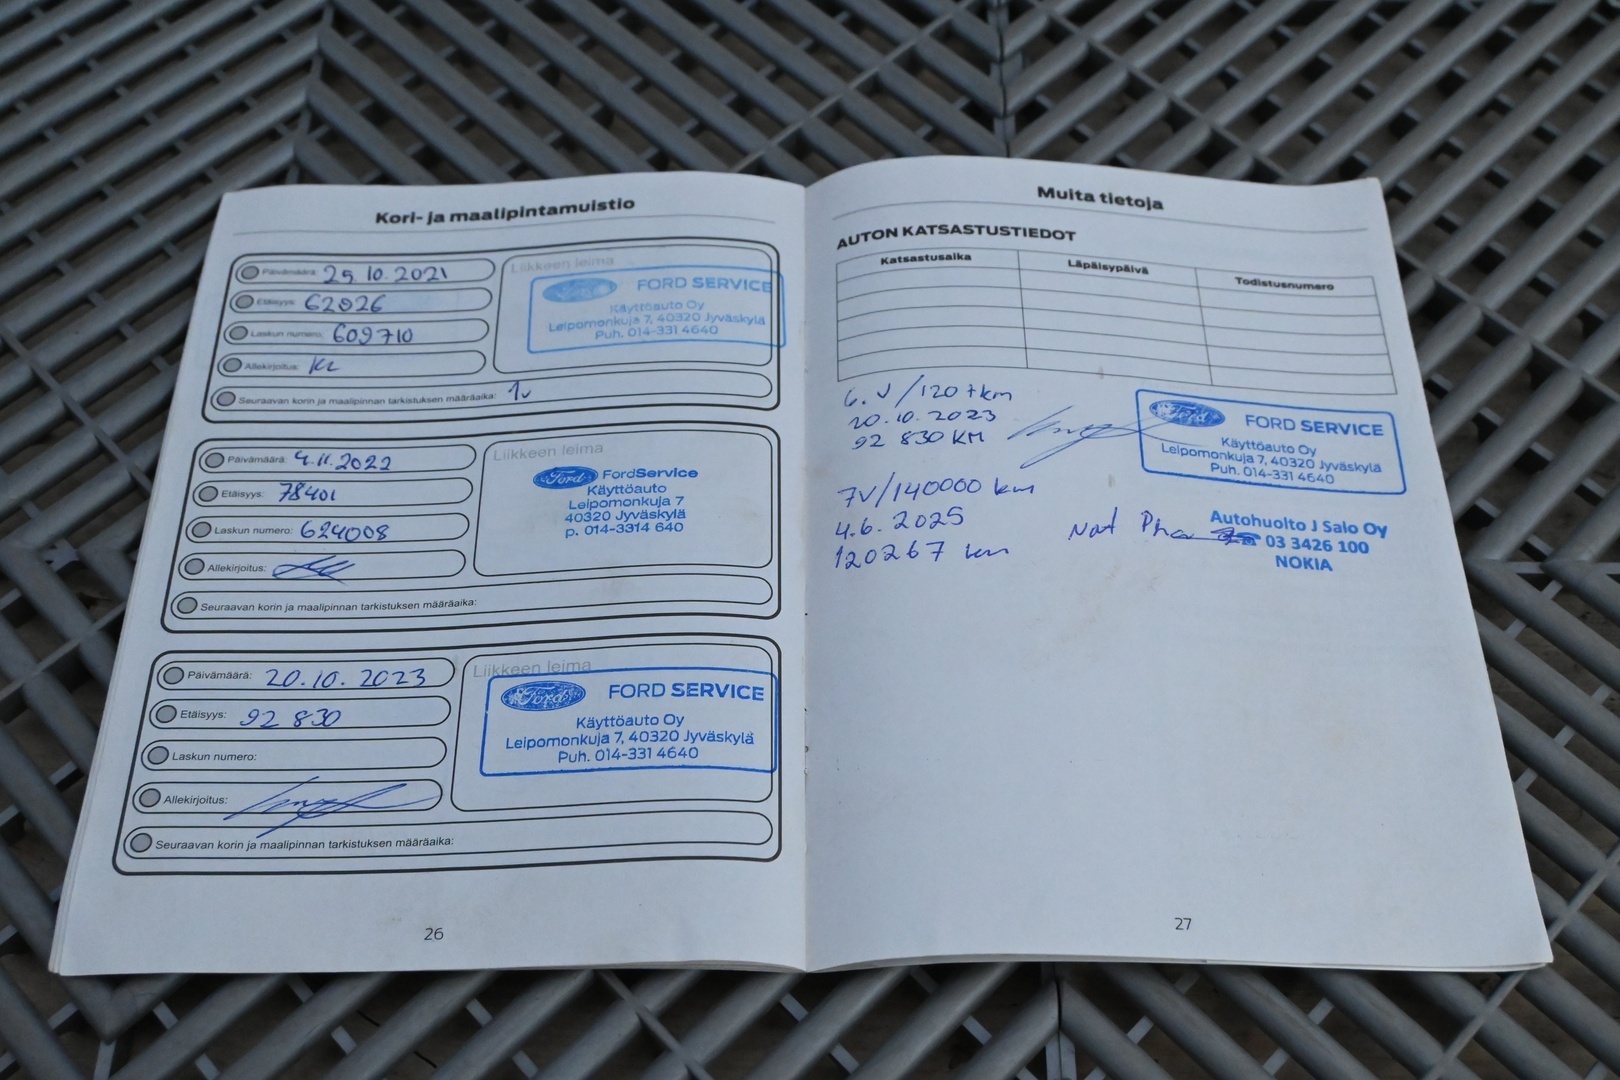 Kori- ja maalipintamuistio
Päivämäärä: 29.10.2021
Etäisyys: 62026
Laskun numero: 609710
Allekirjoitus: KL
Seuraavan korin ja maalipinnan tarkistuksen määräaika: 1v
Liikkeen leima
Ford FORD SERVICE
Käyttöauto Oy
Leipomonkuja 7, 40320 Jyväskylä
Puh. 014-331 4640
Päivämäärä: 4.11.2022
Etäisyys: 78401
Laskun numero: 624008
Allekirjoitus:
Seuraavan korin ja maalipinnan tarkistuksen määräaika:
Liikkeen leima
Ford FordService
Käyttöauto
Leipomonkuja 7
40320 Jyväskylä
p. 014-3314 640
Päivämäärä: 20.10.2023
Etäisyys: 92 830
Laskun numero:
Allekirjoitus:
Seuraavan korin ja maalipinnan tarkistuksen määräaika:
Liikkeen leima
Ford FORD SERVICE
Käyttöauto Oy
Leipomonkuja 7, 40320 Jyväskylä
Puh. 014-331 4640
26
Muita tietoja
AUTON KATSASTUSTIEDOT
Katsastusaika Läpäisypäivä Todistusnumero
6.V/120 tkm
20.10.2023
92 830 KM
Ford FORD SERVICE
Käyttöauto Oy
Leipomonkuja 7, 40320 Jyväskylä
Puh. 014-331 4640
7V/140000 km
4.6.2025
120267 km
Autohuolto J Salo Oy
☎ 03 3426 100
NOKIA
27